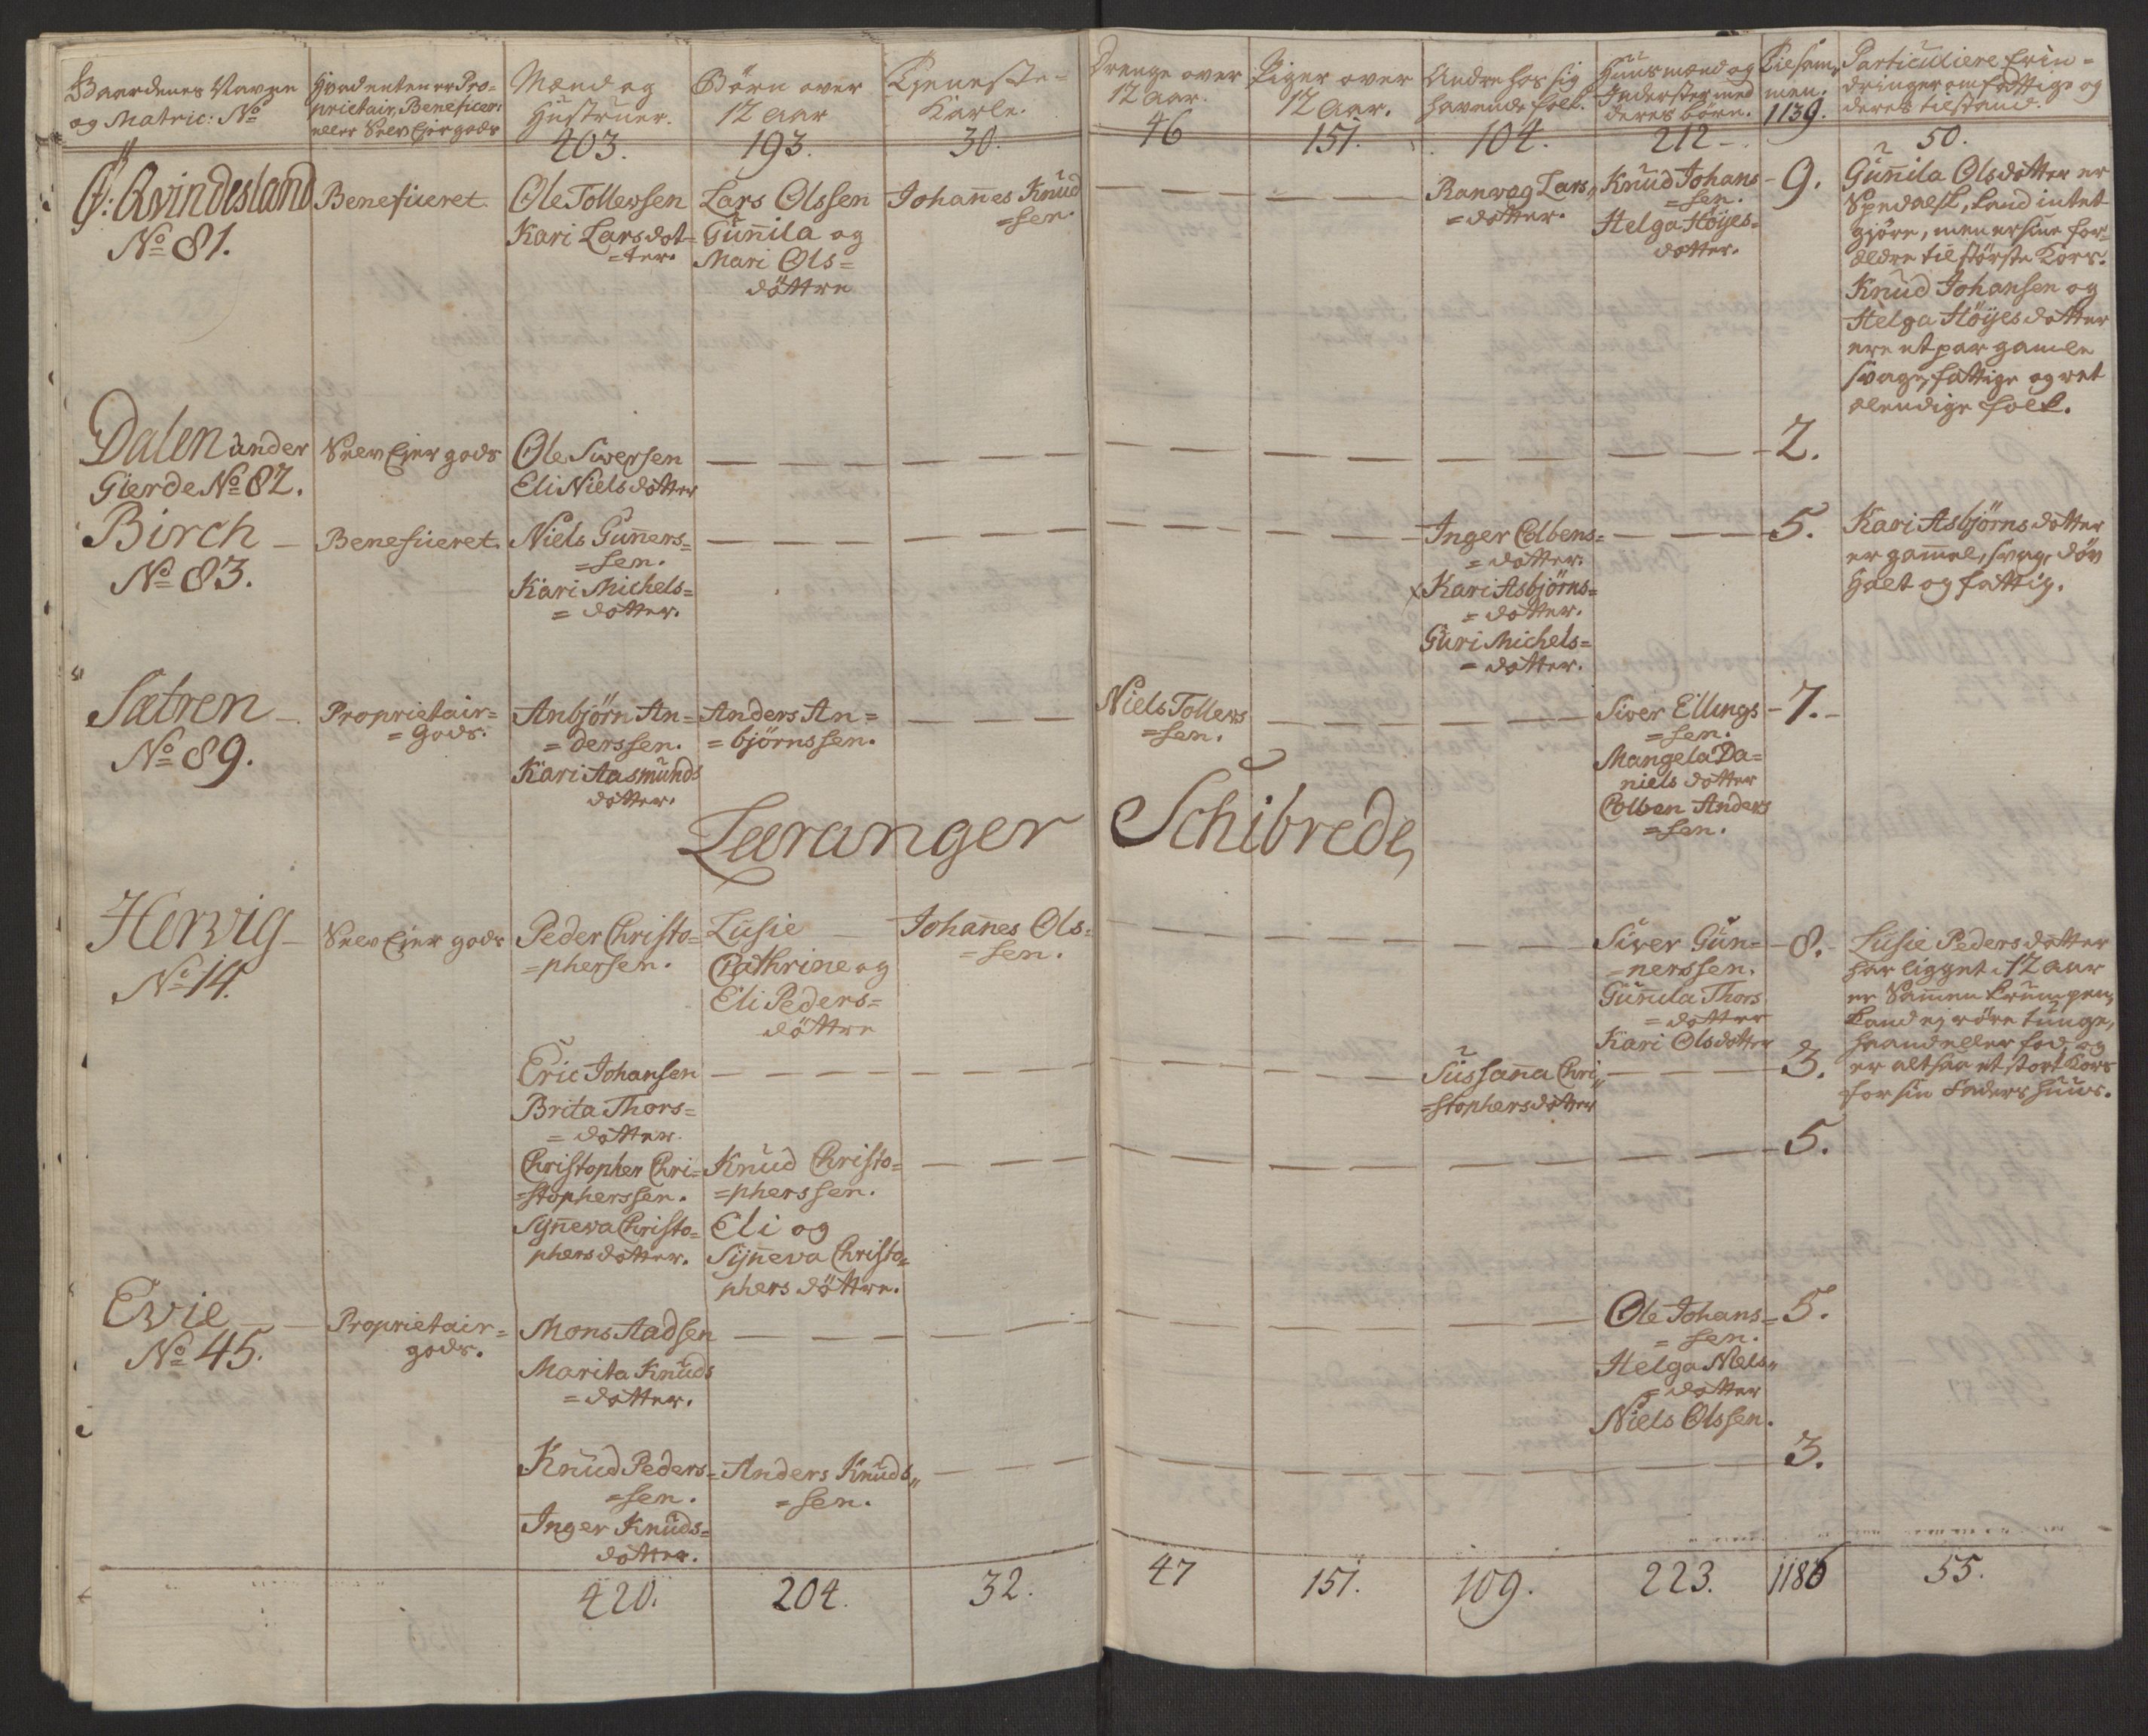 Gaardenes Navne
og Matric: No
Hvadenten er Pro-
prietair, Beneficer:
eller Selv Ejer gods
Mænd og
Hustruer.
403.
Börn over
12 Aar
193.
Tjeneste-
Karle.
30.
Drenge over
12 Aar.
46
Piger over
12 Aar.
151.
Andre hos sig
havende folk.
104.
Huusmænd og
Inderster med
deres börn.
212
Tilsam-
men.
1139.
Particuliere Erin-
dringer om fattige og
deres tilstand.
50.
Qvindesland
No 81.
Beneficeret.
Ole Tollevsen
Kari Larsdot-
=ter.
Lars Olssen
Gunnila og
Mari Ols=
döttre
Johannes Knud
=sen.
Ranvog Lars„
=dotter.
Knud Johans
=sen.
Helga Höyes=
dotter.
9.
Gunnila Olsdotter er
Spedalsk, kand intet
gjöre, men er sine for-
ældre til störste Kors.
Knud Johansen og
Helga Höyesdotter
ere et par gamle
svage, fattige og ret
elendige folk.
Dalen under
Gierde No 82.
Selv Ejer gods
Ole Siversen
Eli Nielsdotter
2.
Birch
No 83.
Beneficeret.
Niels Gunners=
=sen.
Kari Michels=
=dotter.
Inger Colbens=
=dotter.
x Kari Asbjörns=
=dotter.
Guri Michels=
=dotter.
5.
Kari Asbjörnsdotter
er gammel, svag, döv
halt og fattig.
Sætren
No 89.
Proprietair=
=Gods.
Anbjörn An=
=derssen.
Kari Aasmunds
dotter.
Anders An=
=björnssen.
Niels Tollevs
=sen.
Siver Ellings
=sen.
Mangela Da=
niels dotter
Colben Anders
=sen.
7.
Læranger Schibrede,
Hervig
No 14.
Selv Ejer gods
Peder Christo=
=phersen.
Lusie
Cathrine og
Eli Peders=
döttre
Johannes Ols=
=sen.
Siver Gun=
=nerssen.
Gunnila Thors
=dotter
Kari Olsdotter
8.
Lusie Pedersdotter
har ligget i 12 Aar
er Sammen krumpen,
kand ej röre tunge,
haand eller fod, og
er altsaa et stort Kors
for sin Faders Huus.
Eric Johansen
Brita Thors=
=dotter.
Sussanna Chri„
=stophersdotter
3.
Christopher Chri-
=stopherssen.
Synneva Christo=
phersdotter.
Knud Christo=
=pherssen.
Eli og
Synneva Christo=
phers döttre.
5.
Evie
No 45.
Proprietair=
gods.
Mons Aadsen
Marita Knuds
=dotter.
Ole Johans=
=sen.
Helga Niels„
=dotter
Niels Olssen.
5.
Knud Peders=
=sen.
Inger Knuds=
dotter.
Anders Knuds„
=sen.
3.
420.
204.
32.
47
151.
109.
223.
1186
55.